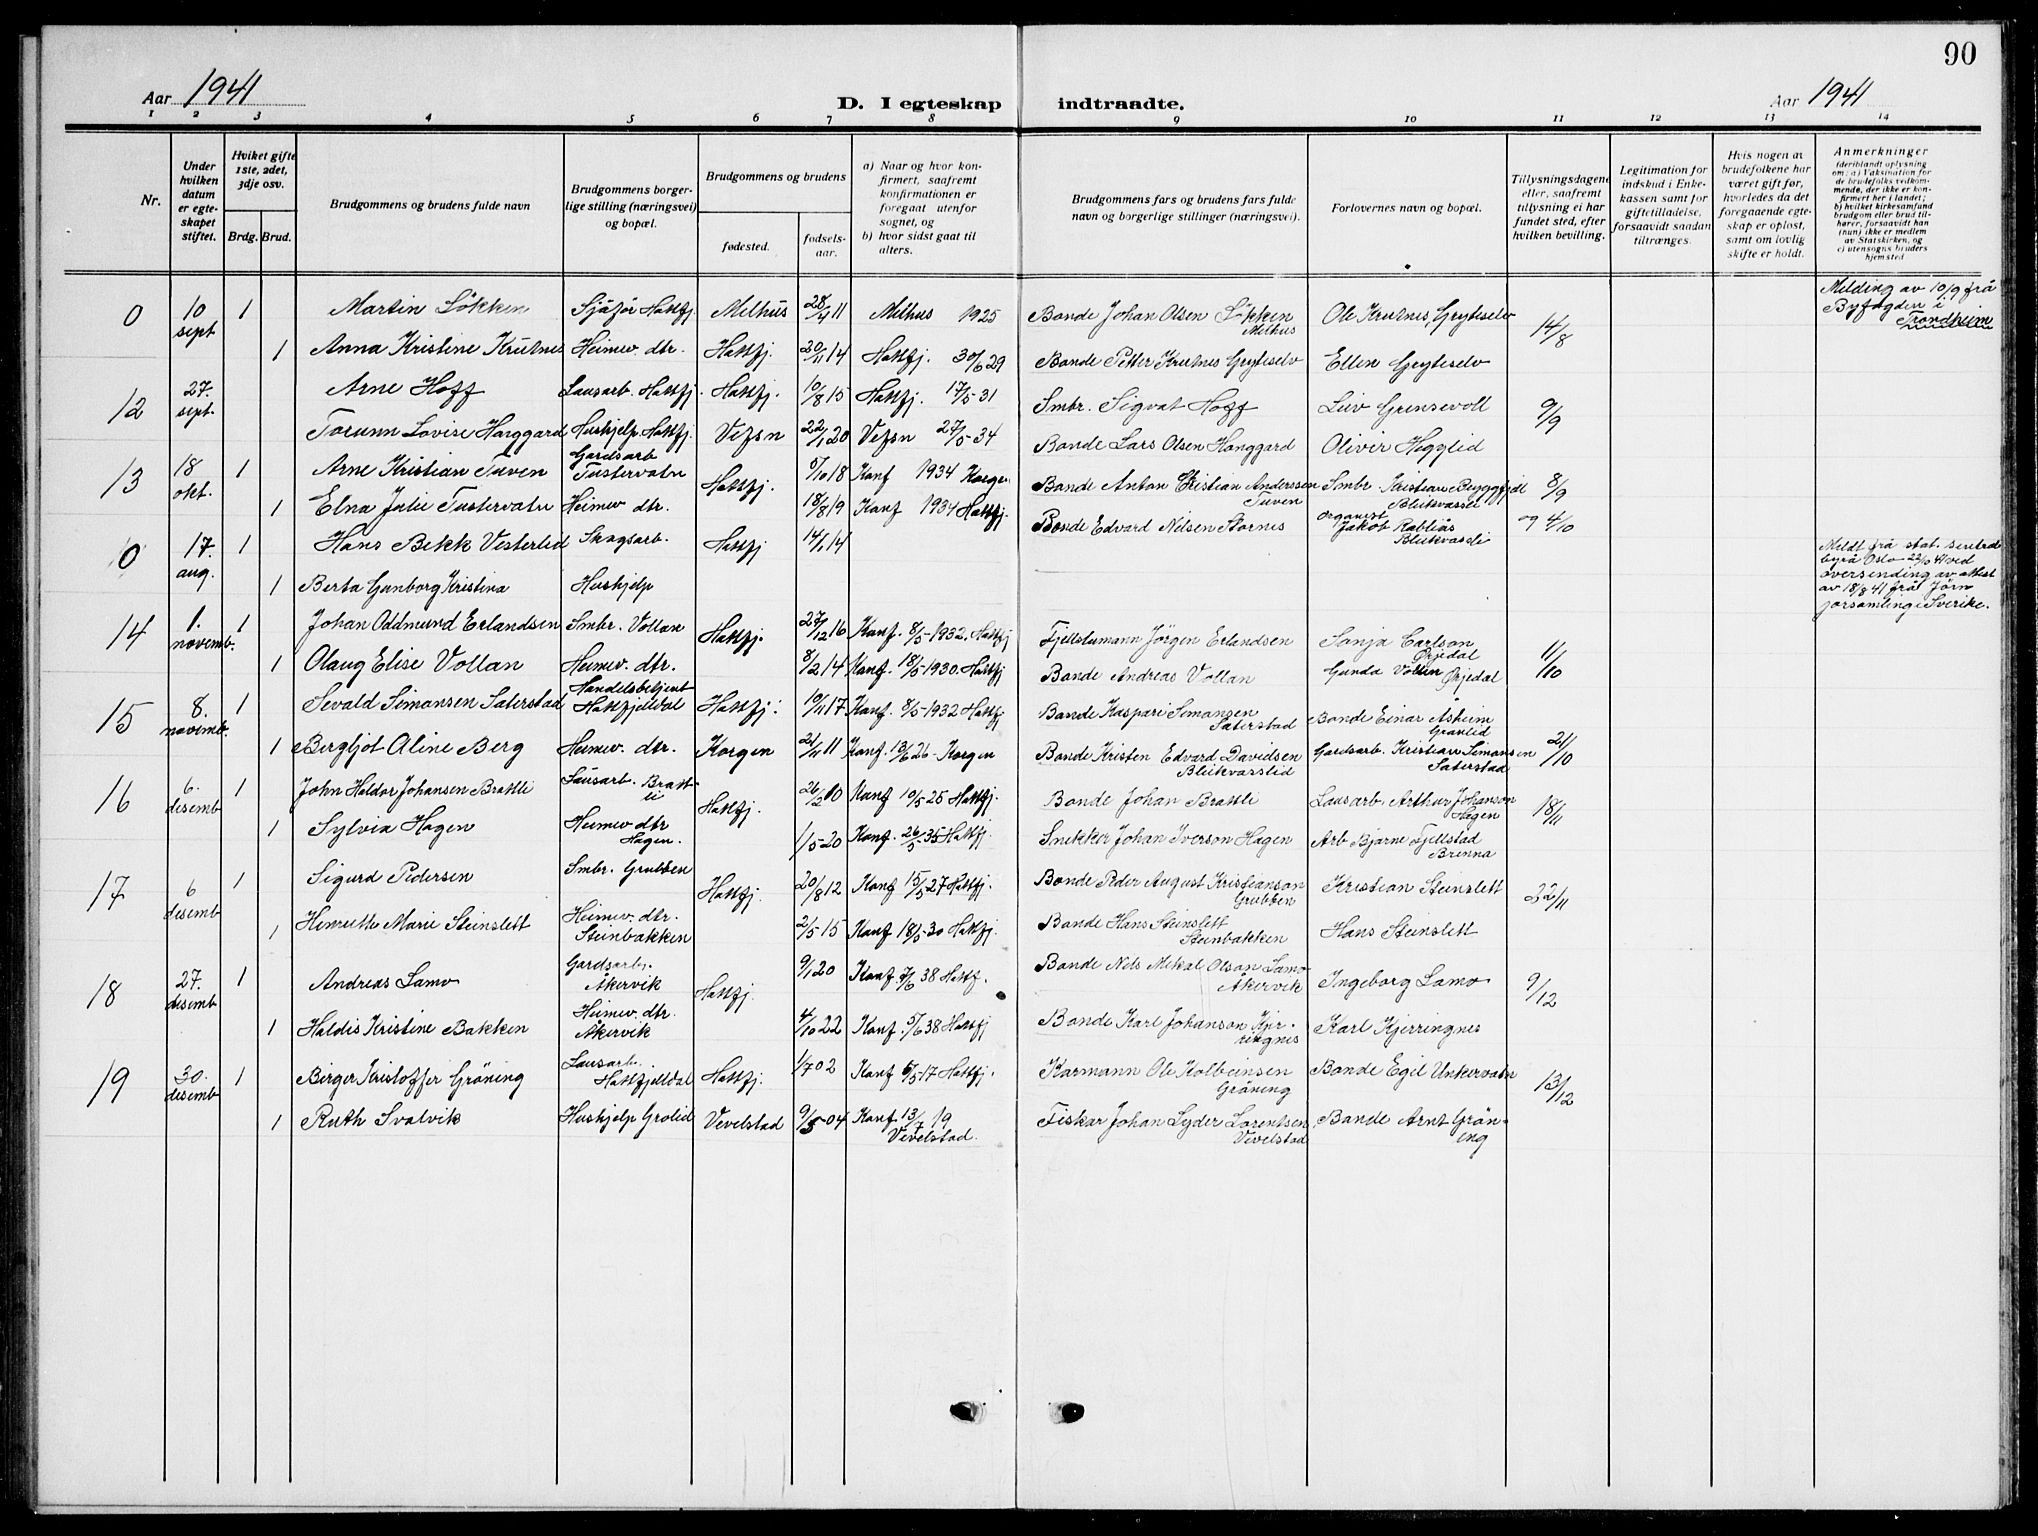 90
Aar 1941
D. I egteskap indtraadte.
Aar 1941
1 2 3 4 5 6 7 8 9 10 11 12 13 14
Nr.
Under hvilken datum er egteskapet stiftet.
Hviket gifte 1ste, 2det, 3dje osv.
Brdg. Brud.
Brudgommens og brudens fulde navn
Brudgommens borgerlige stilling (næringsvei) og bopæl.
Brudgommens og brudens
fødested.
fødselsaar.
a) Naar og hvor konfirmert, saafremt konfirmationen er foregaat utenfor sognet, og
b) hvor sidst gaat til alters.
Brudgommens fars og brudens fars fulde navn og borgerlige stillinger (næringsvei).
Forlovernes navn og bopæl.
Tillysningsdagene eller, saafremt tillysning ei har fundet sted, efter hvilken bevilling.
Legitimation for indskud i Enkekassen samt for giftetilladelse, forsaavidt saadan tiltrænges.
Hvis nogen av brudefolkene har været gift før, hvorledes da det foregaaende egteskap er opløst, samt om lovlig skifte er holdt.
Anmerkninger
(deriblandt oplysning om: a) Vaksination for de brudefolks vedkommende, der ikke er konfirmert her i landet; b) hvilket kirkesamfund brudgom eller brud tilhører, forsaavidt han (hun) ikke er medlem av Statskirken, og c) utensogns bruders hjemsted
0 10 sept 1 Martin Løkken Sjåfør Hattfj. Melhus 28/4 11 Melhus 1925 Bonde Johan Olsen Løkken Melhus Ole Krutnes, Gryteselv 14/8 Melding av 10/9 frå Byfogden i Trondheim
1 Anna Kristine Krutnes Heimev. dtr. Hattfj. 20/11 14 Hattfj. 30/6 29 Bonde Petter Krutnes Gryteselv Ellen Gryteselv
12 27. sept. Arne Hoff Lausarb. Hattfj. Hattfj. 10/8 15 Hattfj. 17/5-31 Smbr. Sigvat Hoff Leiv Grensevoll 9/9
Torunn Lovise Hanggard Hushjelp Hattfj. Vefsn 22/1 20 Vefsn 27/5-34 Bonde Lars Olsen Hanggard Oliver
13 18 okt. 1 Arne Kristian Tuven Gardsarb Tustervatn Hattfj. 5/10 18 Konf 1934 Korgen Bonde Anton Cristian Anderssen Tuven Smbr. Kristian Bryggfjel Bleikvassli 8/9
1 Elna Julie Tustervatn Heimev dtr. 18/8 19 Konf 1934 Hattfj. Bonde Edvard Nilsen Stornes Organist Jakob Rabliås Bleikvassli og 4/10
0 17. aug. 1 Hans Bekk Vesterlid Skogsarb. Hattfj 14/1 14 Meldt frå stat. sentralbyrå Oslo 22/10 41 ved oversending av attest av 18/8 41 frå Jørn forsamling i Sverike.
1 Berta Gunborg Kristina Hushjelp
14 1. novemb. 1 Johan Oddmund Erlandsen Smbr. Vollan Hattfj. 27/12 16 Konf. 8/5-1932. Hattfj Fjellstumann Jørgen Erlandsen Sonja Carlson Ørjedal 11/10
1 Olaug Elise Vollan Heimev. dtr. 8/2 14 Konf. 18/5-1930. Hattfj Bonde Andreas Vollan Gunda Vollan Ørjedal
15 8. novemb. 1 Sevald Simonsen Sæterstad Handelsbetjent Hattfjelldal Hattfj. 10/11 17 Konf. 8/5-1932 Hattfj Bonde Kaspari Simonsen Sæterstad Bonde Einar Åsheim Grønlid
1 Bergljot Aline Berg Heimev. dtr. Korgen 21/1 11 Konf. 13/6 26. Korgen Bonde Kristen Edvard Davidsen Bleikvasslid Gardsarb. Kristian Simonsen Sæterstad 21/10
16 6. desemb 1 John Haldor Johansen Brattli Lausarb. Brattli Hattfj. 26/2 10 Konf 10/5 25 Hattfj. Bonde Johan Brattli Lausarb. Arthur Johanson Hagen 18/11
1 Sylvia Hagen Heimev dtr Hagen. 1/5-20 Konf. 26/5-35 Hattfj. Snekker Johan Iverson Hagen Arb Bjarne Fjellstad Brenna
17 6 desemb 1 Sigurd Pedersen Smbr. Grubben Hattfj. 20/8 12 Konf 15/5 27 Hattfj. Bonde Peder August Kristianson Grubben Kristian Steinslett 22/11
1 Henrette Marie Steinslett Heimev. dtr. Steinbakken 2/5-15 Konf 18/5-30 Hattfj. Bonde Hans Steinslett Steinbakken Hans Steinslett
18 27. desemb 1 Andreas Lamo Gardsarb. Åkervik Hattfj. 9/1 20 Konf 5/6 38 Hattfj. Bonde Nils Mikal Olson Lamo Åkervik Ingeborg Lamo 9/12
1 Haldis Kristine Bakken Heimev. dtr. Åkervik 4/10 22 Konf. 5/6 38 Hattfj Bonde Karl Johanson Kjerringnes Karl Kjerringnes
19 30. desemb 1 Birger Kristoffer Grøning Lausarb. Hattfjelldal Hattfj. 1/7 02 Konf 6/5-17 Hattfj. Karmann Ole Kolbeinsen Grøning Bonde Egil Unkervatn 13/12
1 Ruth Svalvik Hushjelp Grolid Vevelstad 9/5-04 Konf 13/7 19 Vevelstad. Fiskar Johan Lyder Lorentsen Vevelstad Bonde Arnt Grøning